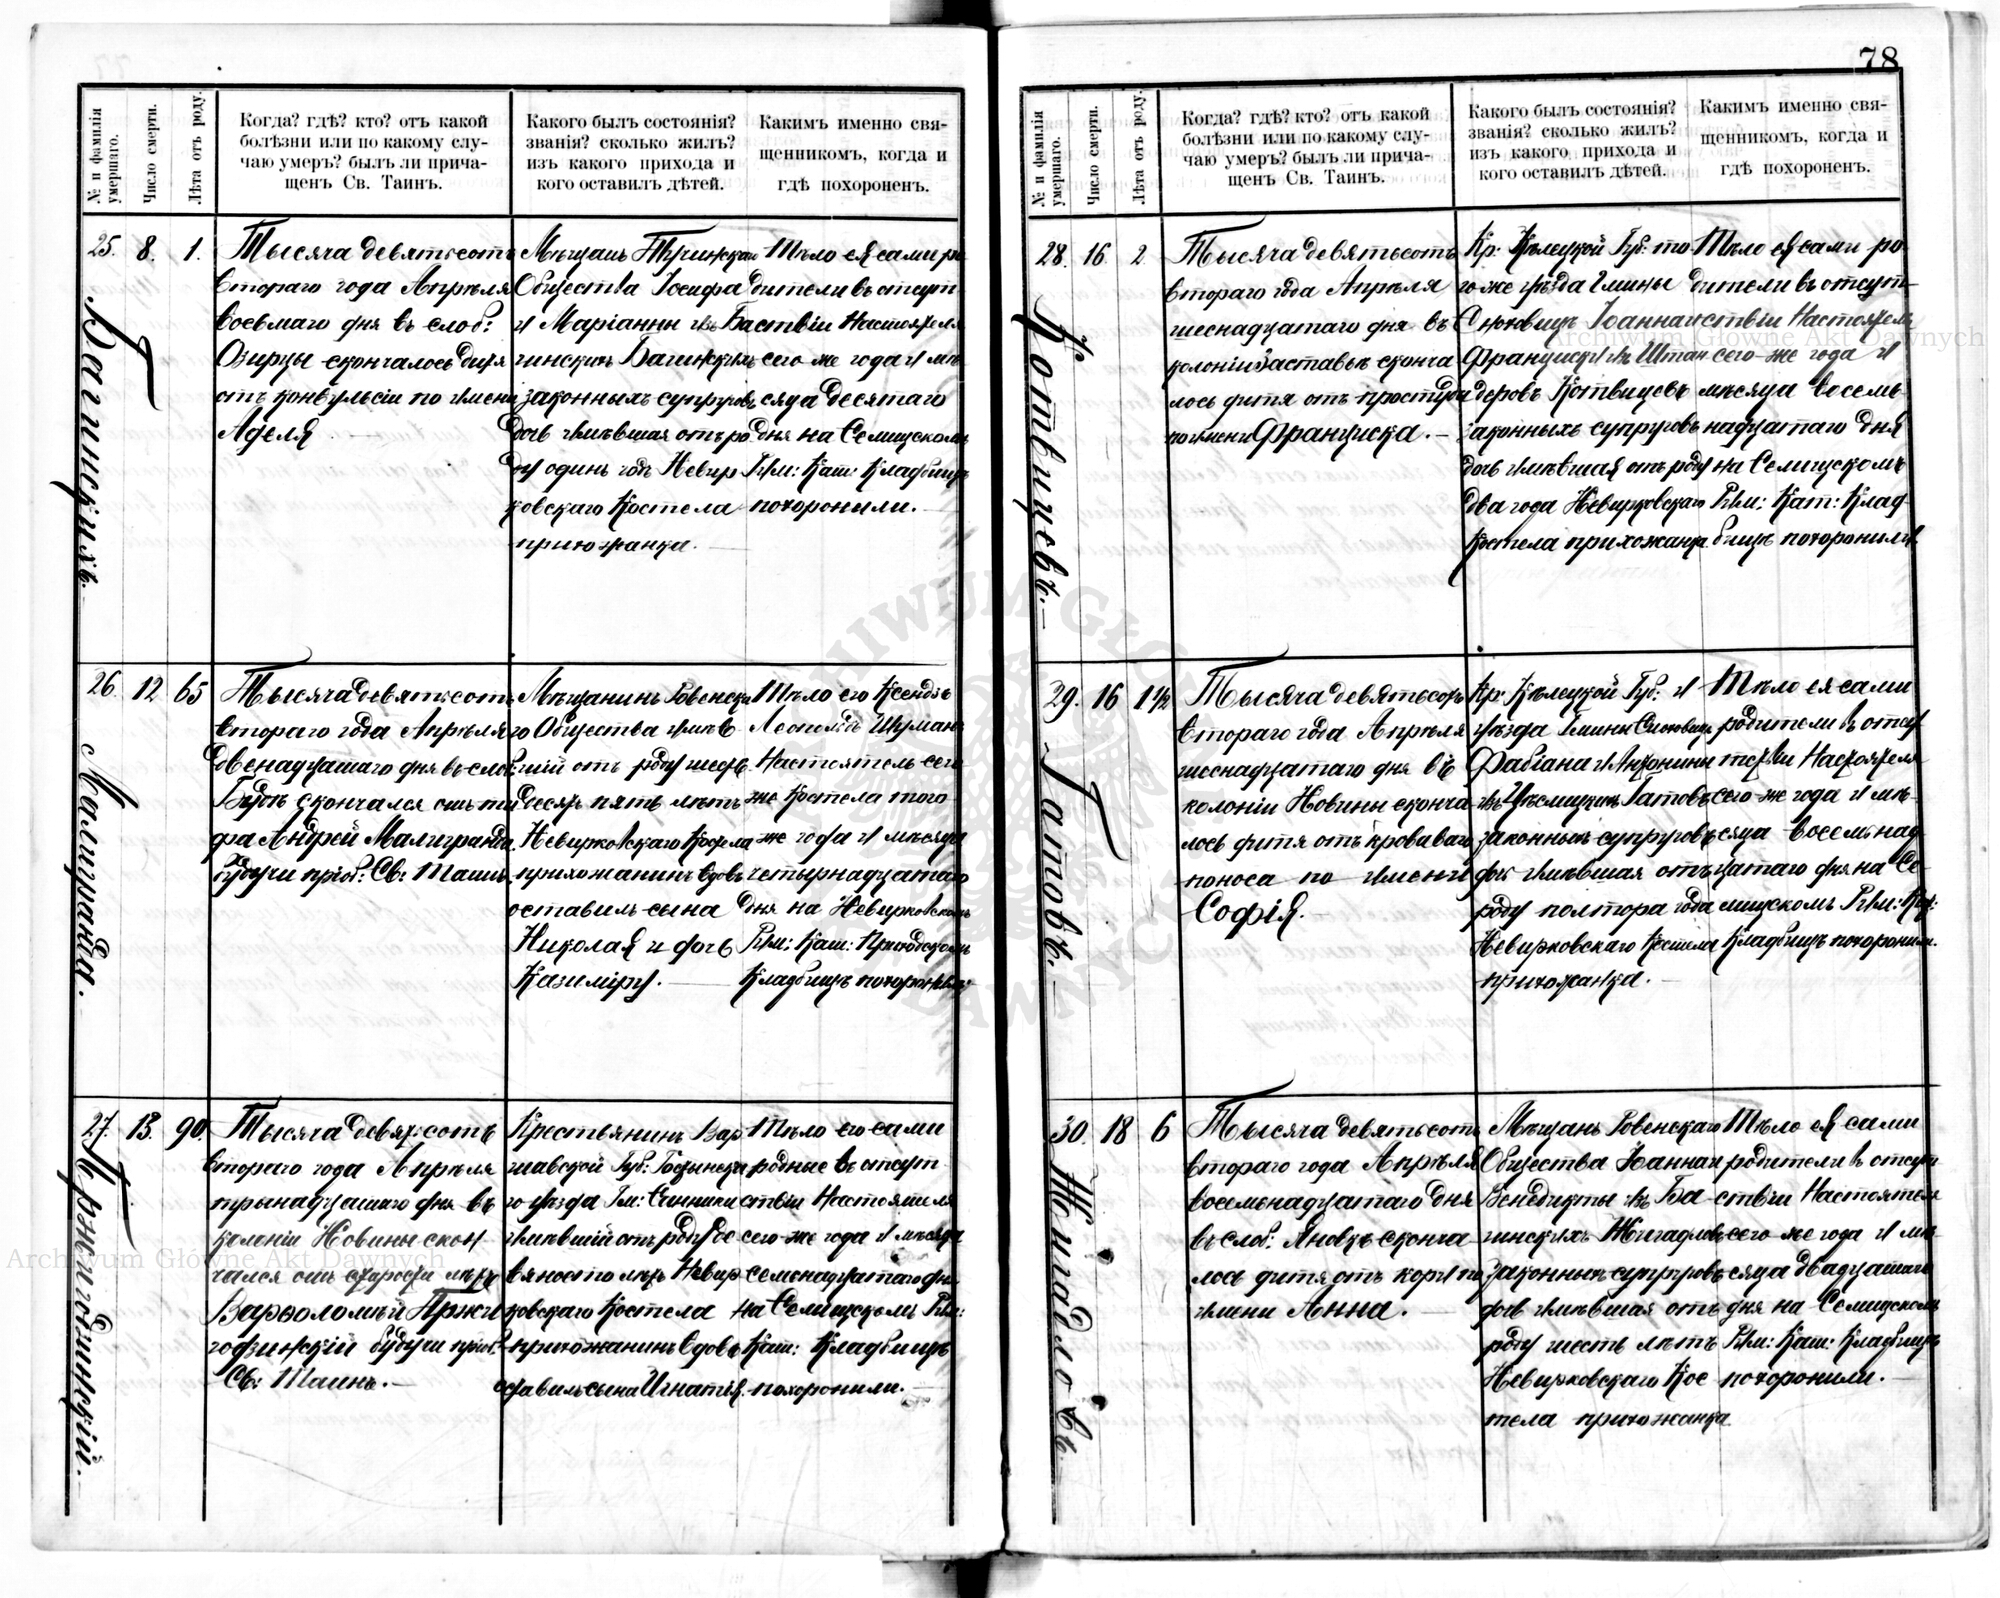 78
№ и фамилія умершаго.
Число смерти.
Лѣта отъ роду.
Когда? гдѣ? кто? отъ какой
болѣзни или по какому слу-
чаю умеръ? былъ ли прича-
щенъ Св. Таинъ.
Какого былъ состоянія?
званія? сколько жилъ?
изъ какого прихода и
кого оставилъ дѣтей.
Каимъ именно свя-
щенникомъ, когда и
гдѣ похороненъ.
25. 8. 1.
Багинскихъ.
Тысяча девятьсотъ
втораго года Апрѣля
восьмаго дня въ слоб:
Озирцы скончалось дитя
отъ конвульсіи по имени
Аделя
Мѣщанъ
Общества Іосифа
и Маріанны изъ Ба
чинскихъ Багинскихъ
законныхъ супруговъ
дочь имѣвшая отъ ро
ду одинъ годъ Невир
ковскаго Костела
прихожанка.
Тѣло ея сами ро
дители въ отсут
ствіи Настоятеля
сего же года и мѣ
сяца десятаго
дня на Селищскомъ
Рим: Кат: Кладбищѣ
похоронили.
26. 12 65
Малигранда.
Тысяча девятьсотъ
втораго года Апрѣля
двенадцатаго дня въ слоб:
скончался отъ ти
фа Андрей Малигранда,
будучи приоб: Св: Таинъ.
Мѣщанинъ Ровенска
го Общества имѣв
шій отъ роду шесть
десятъ пять лѣтъ
Невирковскаго Костела
прихожанинъ вдовъ
оставилъ сына
Николая и дочь
Казиміру.
Тѣло его Ксендзъ
Леопольдъ Шуман
Настоятель сего
же Костела того
же года и мѣсяца
четырнадцатаго
дня на Невирковскомъ
Рим: Кат: Приходскомъ
Кладбищѣ похоронилъ.
27. 13. 90.
Пржигодзинскій.
Тысяча девятьсотъ
втораго года Апрѣля
тринадцатаго дня въ
колоніи Новины скон
чался отъ старости лѣтъ
Варѳоломѣй Пржи
годзинскій будучи приоб:
Св: Таинъ.
Крестьянинъ Вар
шавской Губ: Гостынска
го уѣзда Гм:
имѣвшій отъ роду де
вяносто лѣтъ Невир
ковскаго Костела
прихожанинъ вдовъ
оставилъ сына Игнатія.
Тѣло его сами
родные въ отсут
ствіи Настоятеля
сего-же года и мѣсяца
семьнадцатаго дня
на Селищскомъ Рим:
Кат: Кладбищѣ
похоронили.
№ и фамилія умершаго.
Число смерти.
Лѣта отъ роду.
Когда? гдѣ? кто? отъ какой
болѣзни или по какому слу-
чаю умеръ? былъ ли прича-
щенъ Св. Таинъ.
Какого былъ состоянія?
званія? сколько жилъ?
изъ какого прихода и
кого оставилъ дѣтей.
Каимъ именно свя-
щенникомъ, когда и
гдѣ похороненъ.
28. 16. 2
Котвицевъ.
Тысяча девятьсотъ
втораго года Апрѣля
шеснадцатаго дня въ
колоніи Заставье сконча
лось дитя отъ простуды
по имени Франциска.
Кр: Кѣлецкой Губ: то
го-же уѣзда Гмины
Іоанна и
Францишки изъ Штан
деровъ Котвицевъ
законныхъ супруговъ
дочь имѣвшая отъ роду
два года Невирковскаго
Костела прихожанка
Тѣло ея сами ро
дители въ отсут
ствіи Настоятеля
сего-же года и
мѣсяца восемь
надцатаго дня
на Селищскомъ
Рим: Кат: Клад-
бищѣ похоронили.
29. 16 1½
Гатовъ.
Тысяча девятьсотъ
втораго года Апрѣля
шеснадцатаго дня въ
колоніи Новины сконча
лось дитя отъ кроваваго
поноса по имени
Софія.
Кр: Кѣлецкой Губ: и
уѣзда Гмины
Фабіана и Антонины
изъ Гатовъ
законныхъ супруговъ
дочь имѣвшая отъ
роду полтора года
Невирковскаго Костела
прихожанка.
Тѣло ея сами
родители въ отсу
тствіи Настоятеля
сего-же года и мѣ-
сяца восемьнад
цатаго дня на Се-
лищскомъ Рим: Кат:
Кладбищѣ похоронили.
30. 18 6
Жигадловъ.
Тысяча девятьсотъ
втораго года Апрѣля
восемьнадцатаго дня
въ слоб: Яновкѣ сконча
лось дитя отъ кори по
имени Анна.
Мѣщанъ Ровенскаго
Общества Іоанна и
Бенедикты изъ Ба
гинскихъ Жигадловъ
законныхъ супруговъ
дочь имѣвшая отъ
роду шесть лѣтъ
Невирковскаго Кос
тела прихожанка
Тѣло ея сами
родители въ отсут
ствіи Настоятеля
сего же года и мѣ
сяца двадцатаго
дня на Селищскомъ
Рим: Кат: Кладбищѣ
похоронили.
Archiwum Główne Akt Dawnych
Archiwum Główne Akt Dawnych